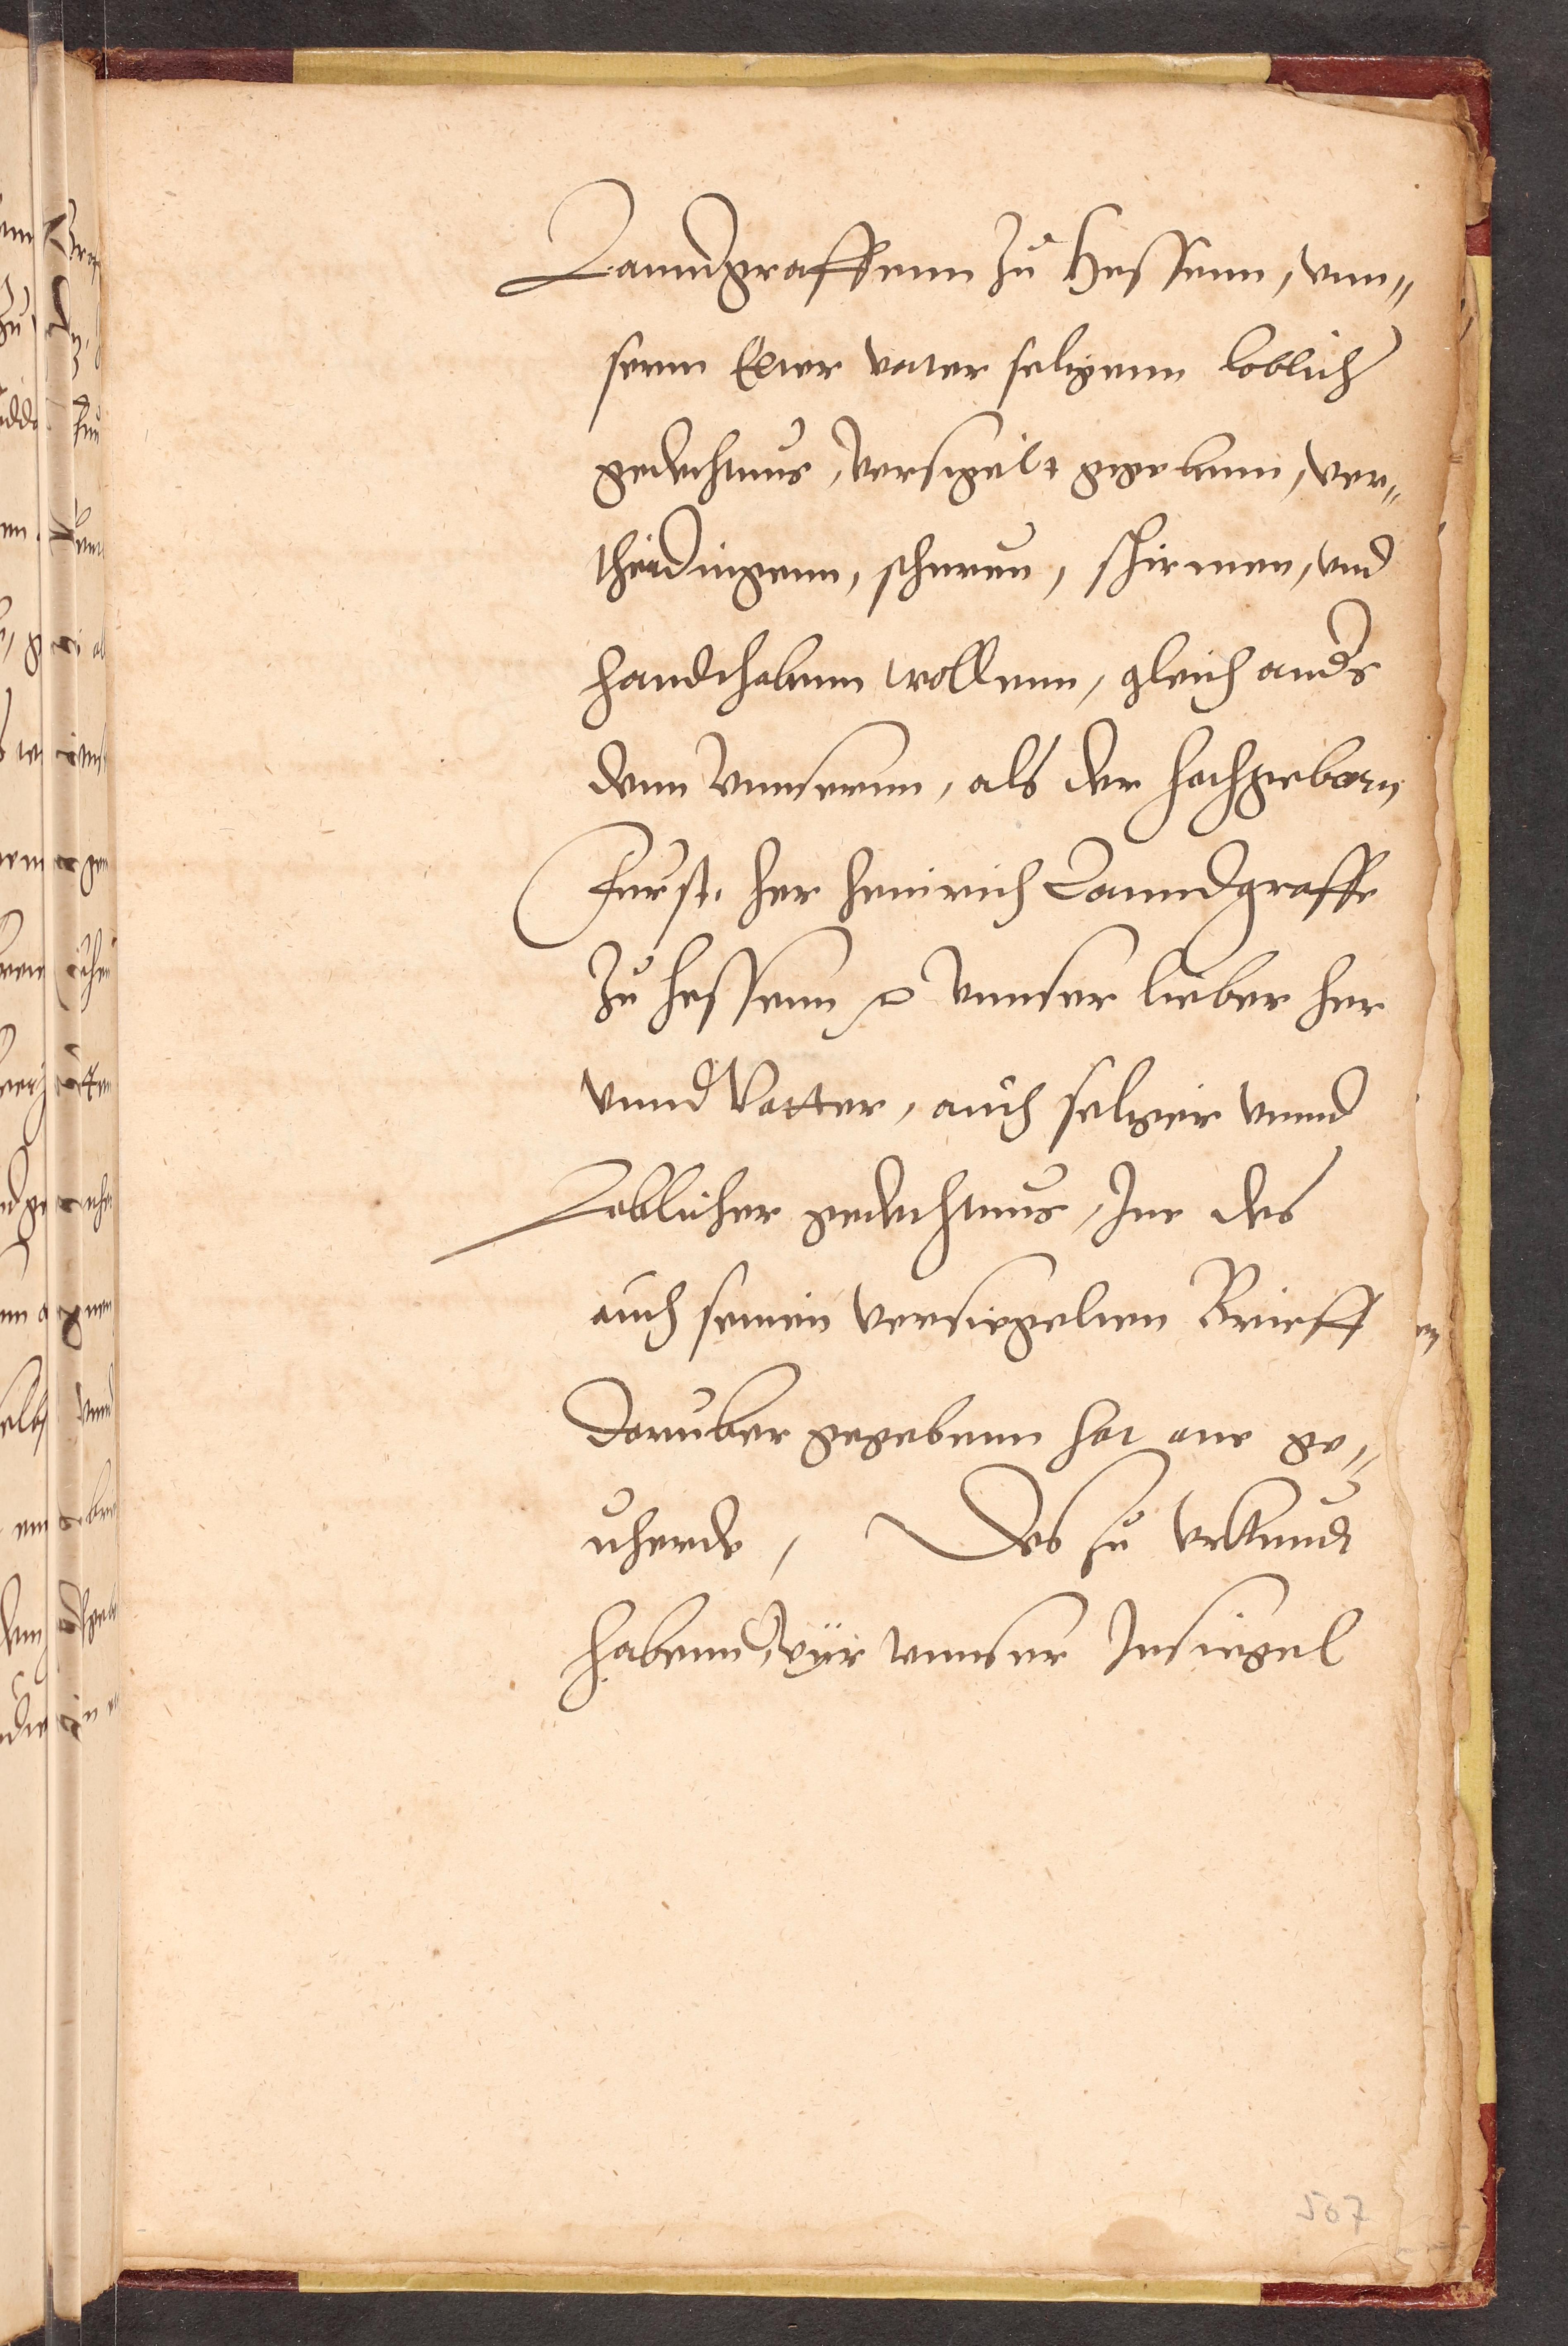 Lanndgraffenn zu Hessenn, vnn„
serm Elter vater seligenn loblich
gedechtnus, versigelt gegebenn, ver„
theidingenn, schuren, schirmen, vnd
handthabenn wollenn, gleich anders
denn vnnserenn, als der hochgeborn
Furst. her Heinrich Lanndgraffe
zu Hessenn vnnser lieber her
vnnd Vatter, auch seliger vnnd
Loblicher gedechtnus, Ine des
auch seinen versiegelten Brieff
daruber gegebenn hat ane ge„
uherde, Des zu vrkundt
habenn wyr vnnser Insiegel
507